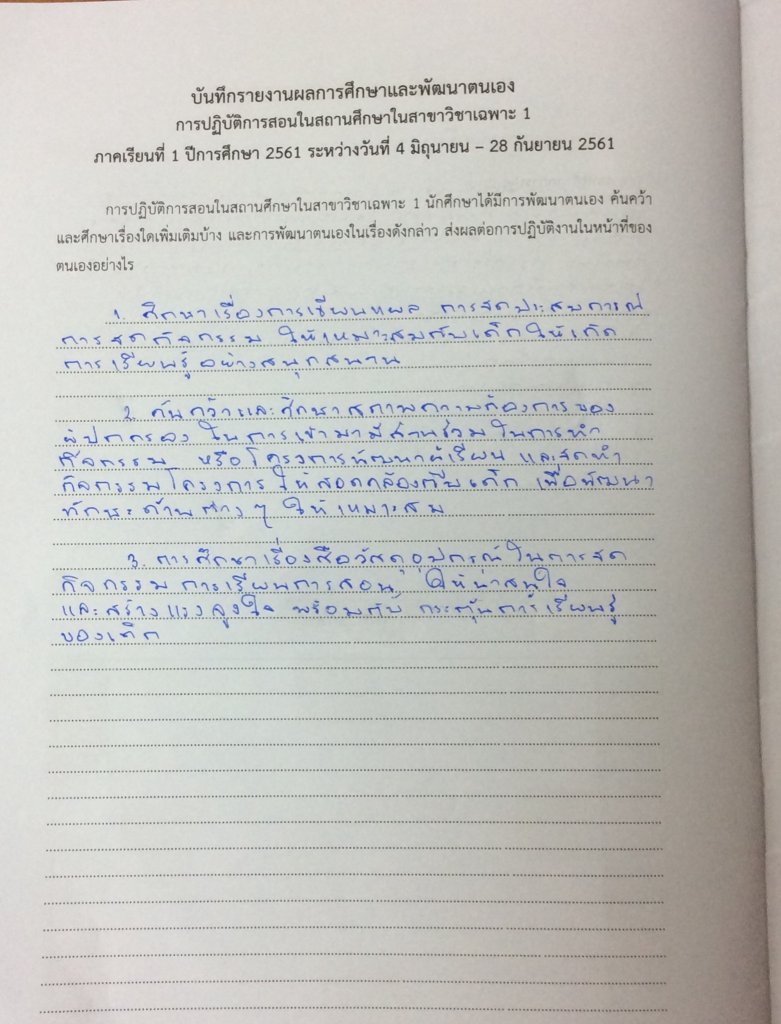 บันทึกรายงานผลการศึกษาและพัฒนาตนเอง
การปฏิบัติการสอนในสถานศึกษาในสาขาวิชาเฉพาะ 1
ภาคเรียนที่ 1 ปีการศึกษา 2561 ระหว่างวันที่ 4 มิถุนายน – 28 กันยายน 2561
การปฏิบัติการสอนในสถานศึกษาในสาขาวิชาเฉพาะ 1 นักศึกษาได้มีการพัฒนาตนเอง ค้นคว้า
และศึกษาเรื่องใดเพิ่มเติมบ้าง และการพัฒนาตนเองในเรื่องดังกล่าว ส่งผลต่อการปฏิบัติงานในหน้าที่ของ
ตนเองอย่างไร
1. ศึกษาเรื่องการเขียนแผล การจัดประสบการณ์
การจัดกิจกรรม ให้เหมาะสมกับเด็กให้เกิด
การเรียนรู้อย่างสนุกสนาน
2. ค้นคว้าและศึกษาสภาพความต้องการของ
ผู้ปกครอง ในการเข้ามามีส่วนร่วมในการทำ
กิจกรรม หรือโครงการพัฒนาผู้เรียน และจัดทำ
กิจกรรมโครงการ ให้สอดคล้องกับเด็ก เพื่อพัฒนา
ทักษะด้านต่าง ๆ ให้เหมาะสม
3. การศึกษาเรื่องสื่อวัสดุอุปกรณ์ในการจัด
กิจกรรมการเรียนการสอน ให้น่าสนใจ
และสร้างแรงจูงใจ พร้อมกับ กระตุ้นการเรียนรู้
ของเด็ก